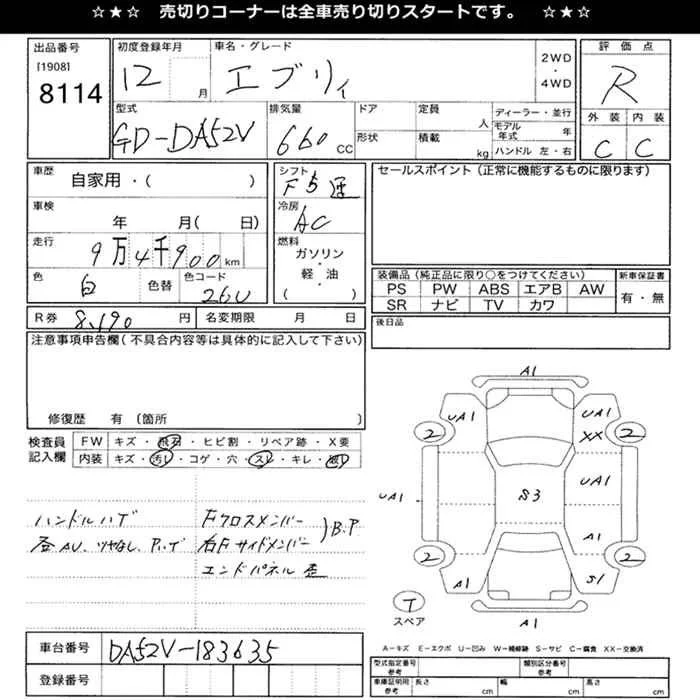 ☆★☆ 売切りコーナーは全車売り切りスタートです。 ☆★☆
出品番号 初度登録年月 車名・グレード 2WD・4WD 評価点
[1908] 8114 12 月 エブリィ R
型式 排気量 ドア 定員 人 ディーラー・並行 外装 内装
GD-DA52V 660 CC 形状 積載 kg モデル年式 年 C C
ハンドル 左・右
車歴 自家用・( ) シフト F5速 セールスポイント (正常に機能するものに限ります)
車検 年 月( 日) 冷房 AC
走行 9万4千900 km 燃料 ガソリン・軽油 ( )
色 白 色替 色コード 26U
装備品 (純正品に限り○をつけてください) 新車保証書
PS PW ABS エアB AW 有・無
SR ナビ TV カワ
R券 8,190 円 名変期限 月 日 後日品
注意事項申告欄 (不具合内容等は具体的に記入して下さい)
修復歴 有 (箇所
検査員記入欄 FW キズ・飛石・ヒビ割・リペア跡・X要
内装 キズ・汚レ・コゲ・穴・スレ・キレ・
ハンドルハゲ Fクロスメンバー B.P
ツヤなし 右Fサイドメンバー
エンドパネル 歪
A1
UA1 UA1
2 XX 2
UA1 S3 UA1
A1
2 2
A1 S1
T スペア A1
A-キズ E-エクボ U-凹み W-補修跡 S-サビ C-腐食 XX-交換済
車台番号 DA52V-183635
登録番号
型式指定番号 参考 類別区分番号 参考
車庫証明用 参考 長さ cm 幅 cm 高さ cm